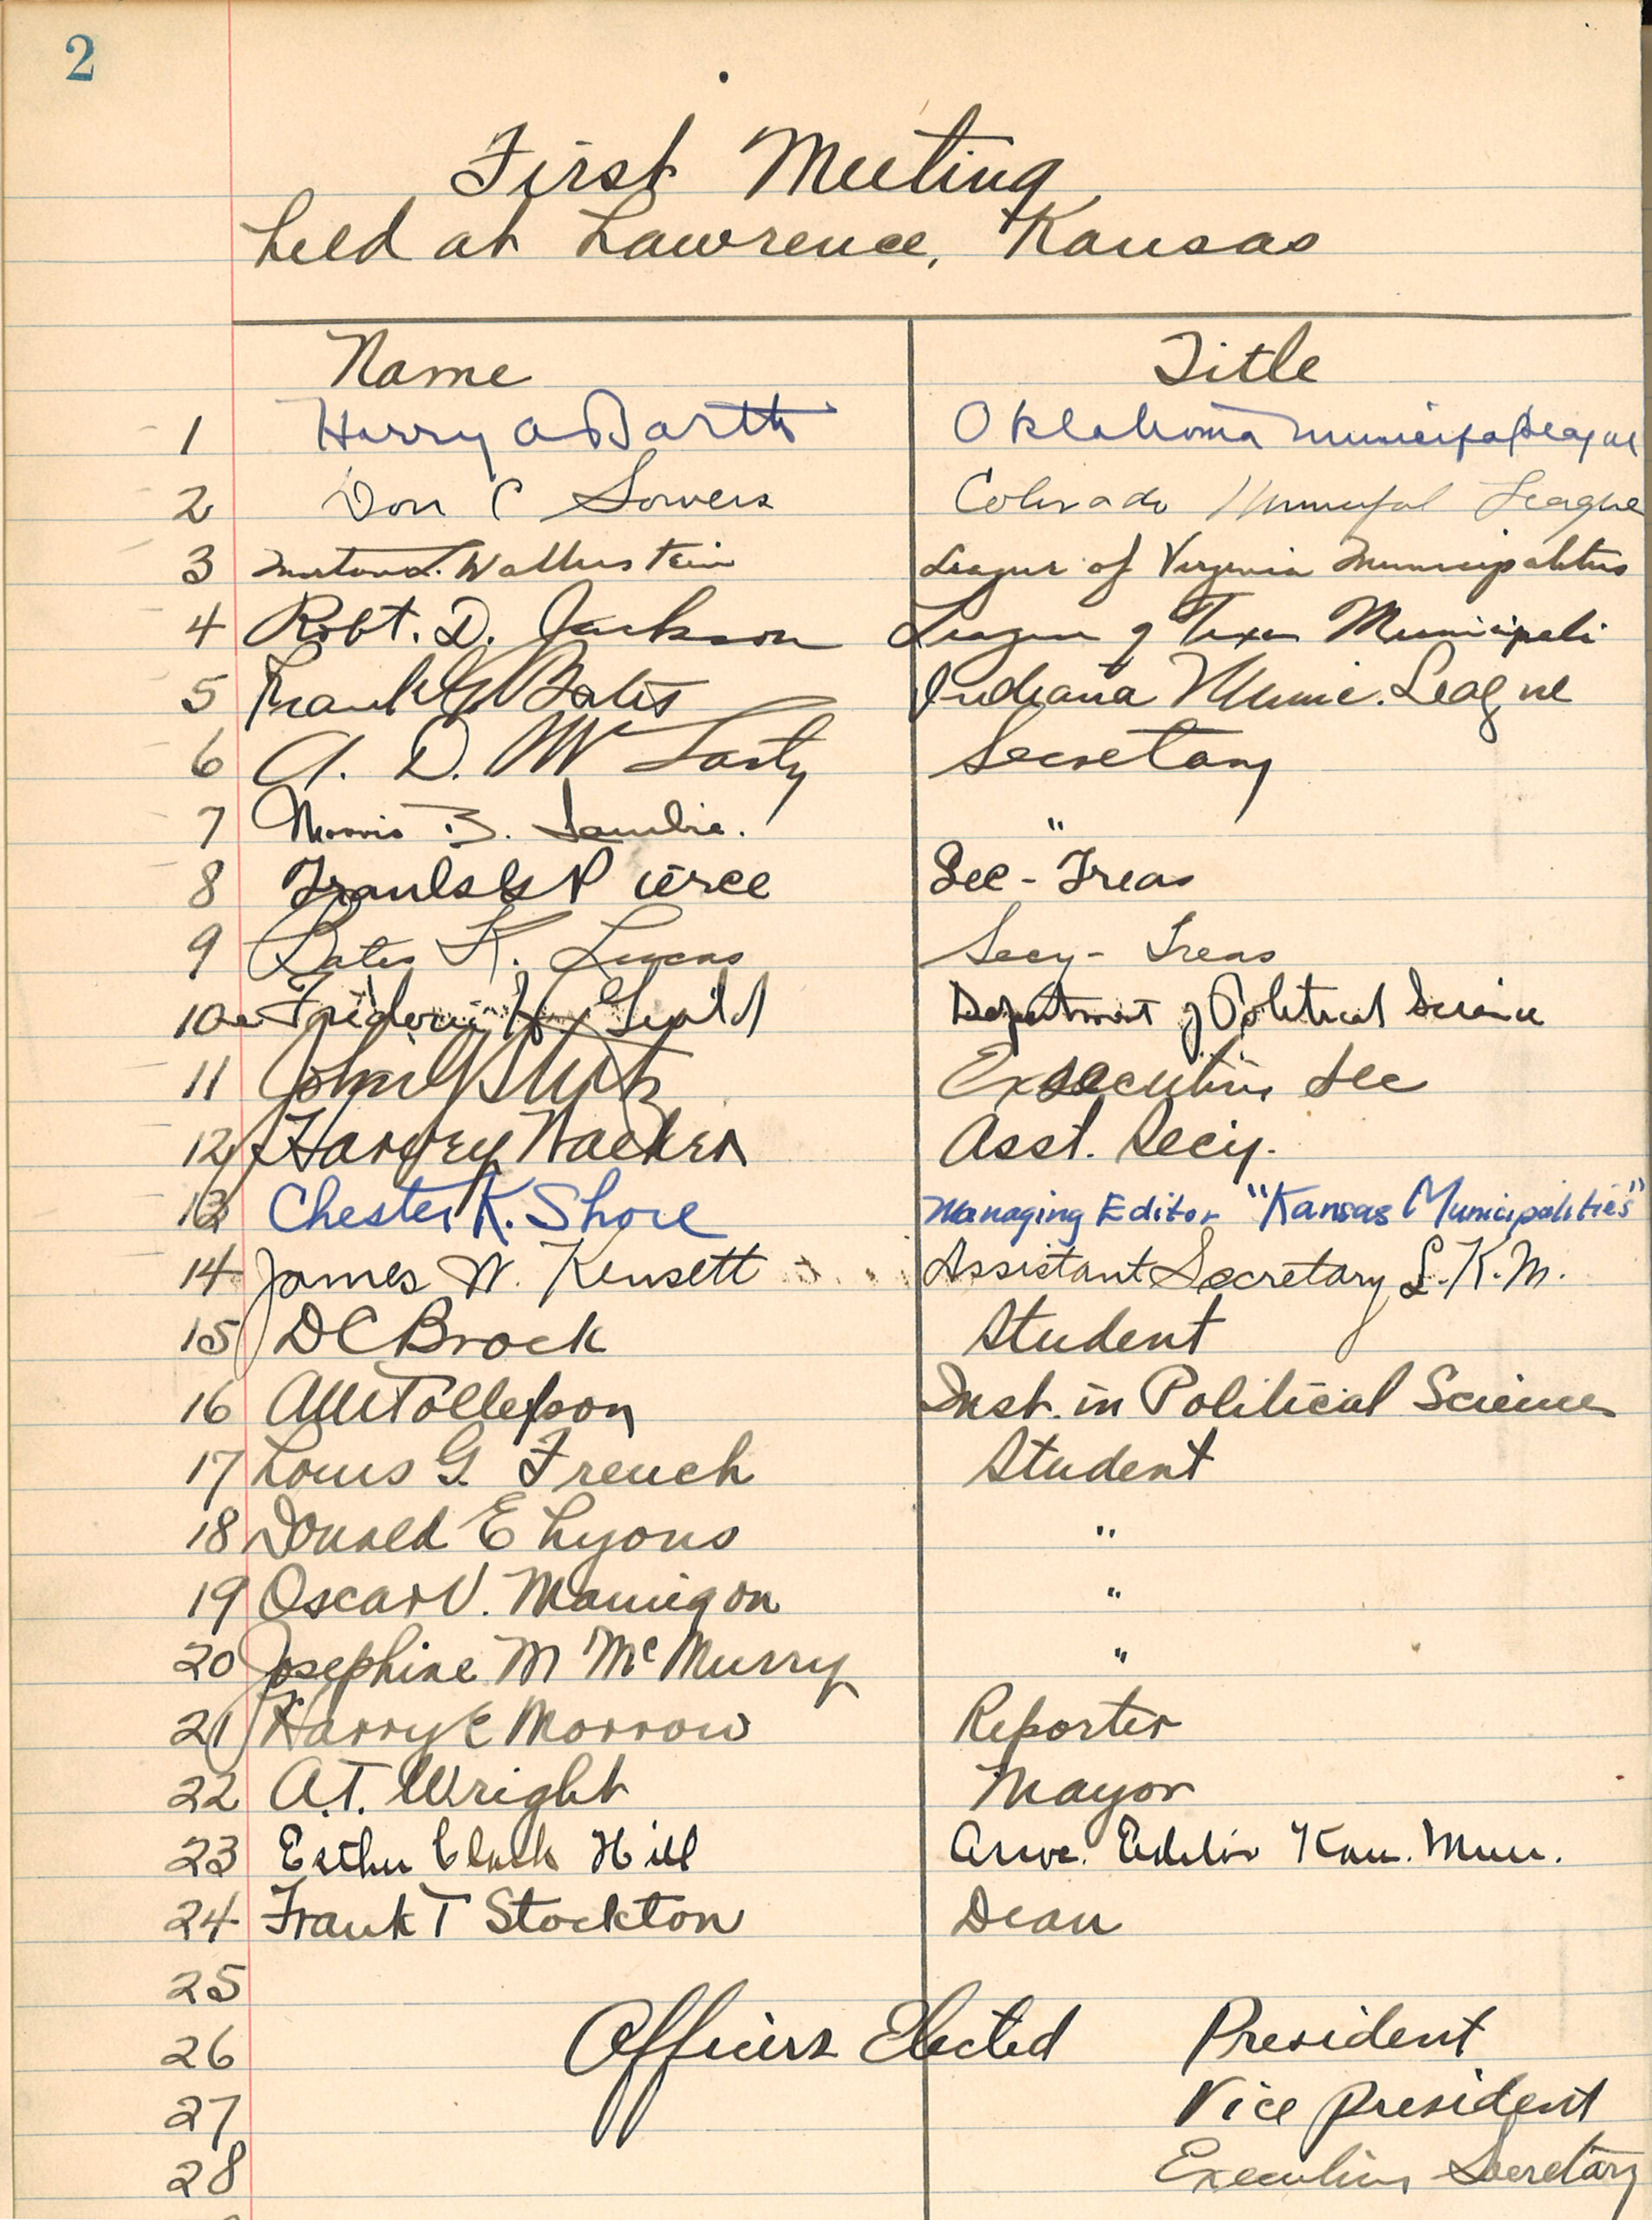 2
First Meeting
held at Lawrence, Kansas
Name Title
1 Harry A Barth Oklahoma Municipal League
2 Don C Sowers Colorado Municipal League
3 Morton L. Wallerstein League of Virginia Municipalities
4 Robt. D. Jackson League of Texas Municipali
5 Frank G Bates Indiana Munic. League
6 A. D. Mc Secretary
7 Morris B. Lambie. "
8 Frank G Pierce Sec - Treas
9 K. Lucas Secy - Treas
10 H. Department of Political Science
11 John G Stutz Executive Sec
12 Harvey Walker Asst. Secy.
13 Chester K. Shore Managing Editor "Kansas Municipalities"
14 James W. Kensett Assistant Secretary L.K.M.
15 D C Brock Student
16 Tollefson Inst. in Political Science
17 Louis G. French Student
18 Donald E Lyons "
19 Oscar V. "
20 Josephine M McMurry "
21 Harry E Morrow Reporter
22 A.T. Wright Mayor
23 Esther Clark Hill Editor Kan. Mun.
24 Frank T Stockton Dean
25
26 Officers Elected President
27 Vice president
28 Executive Secretary